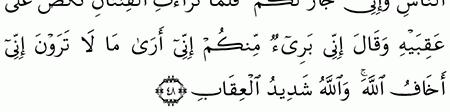 النَّاسِ وَإِنِّى جَارٌ لَّكُمْ فَلَمَّا تَرَآءَتِ الْفِئَتَانِ نَكَصَ عَلَىٰ
عَقِبَيْهِ وَقَالَ إِنِّى بَرِىٓءٌ مِّنكُمْ إِنِّىٓ أَرَىٰ مَا لَا تَرَوْنَ إِنِّىٓ
أَخَافُ اللَّهَ ۚ وَاللَّهُ شَدِيدُ الْعِقَابِ ﴿٤٨﴾